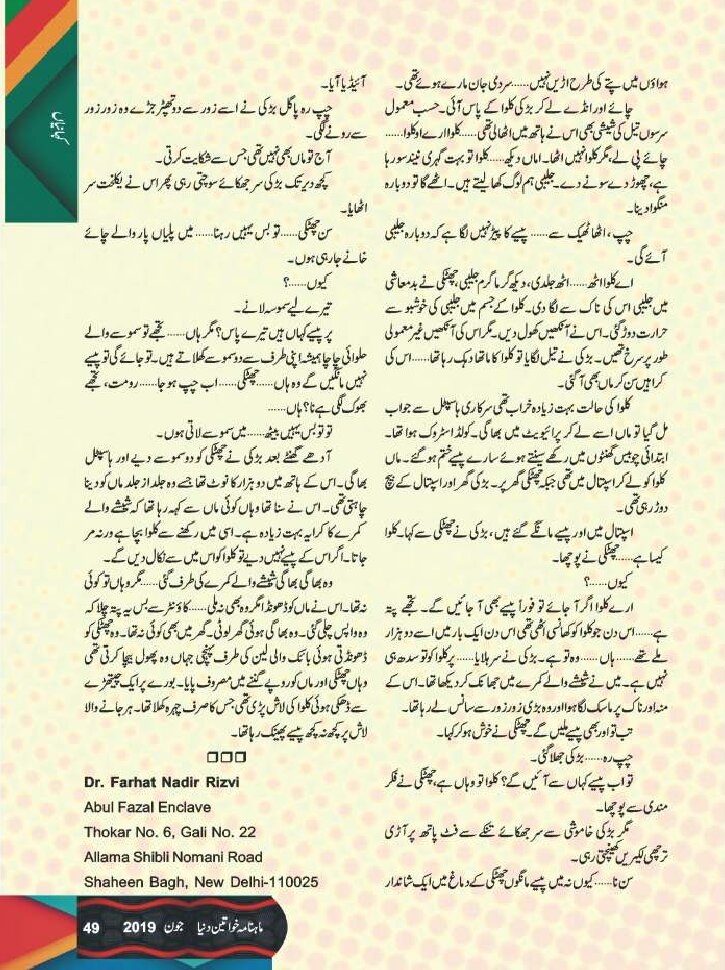 ہواؤں میں پتے کی طرح اڑیں نہیں...... سردی جان مارے ہوئے تھی۔
چائے اور انڈے لے کر بڑکی کلوا کے پاس آئی۔ حسب معمول
سرسوں تیل کی شیشی بھی اس نے ہاتھ میں اٹھالی تھی...... کلوا رے او کلوا......
چائے پی لے، مگر کلوا نہیں اٹھا۔ اماں دیکھ...... کلوا تو بہت گہری نیند سو رہا
ہے، چھوڑ دے سونے دے۔ جلیبی ہم لوگ کھا لیتے ہیں۔ اٹھے گا تو دوبارہ
منگوا دینا۔
چپ، اٹھا ٹھیک سے...... پیسے کا پیڑ نہیں لگا ہے کہ دوبارہ جلیبی
آئے گی۔
اے کلوا اٹھ...... اٹھ جلدی، دیکھ گرما گرم جلیبی، چھٹکی نے بدمعاشی
میں جلیبی اس کی ناک سے لگا دی۔ کلوا کے جسم میں جلیبی کی خوشبو سے
حرارت دوڑ گئی۔ اس نے آنکھیں کھول دیں۔ مگر اس کی آنکھیں غیر معمولی
طور پر سرخ تھیں۔ بڑکی نے تیل لگایا تو کلوا کا ماتھا دہک رہا تھا...... اس کی
کراہیں سن کر ماں بھی آ گئی۔
کلوا کی حالت بہت زیادہ خراب تھی سرکاری ہاسپٹل سے جواب
مل گیا تو ماں اسے لے کر پرائیویٹ میں بھاگی۔ کولڈ اسٹروک ہوا تھا۔
ابتدائی چوبیس گھنٹوں میں رکھے سینتے ہوئے سارے پیسے ختم ہو گئے۔ ماں
کلوا کو لے کر اسپتال میں تھی جبکہ چھٹکی گھر پر۔ بڑکی گھر اور اسپتال کے بیچ
دوڑ رہی تھی۔
اسپتال میں اور پیسے مانگے گئے ہیں، بڑکی نے چھٹکی سے کہا۔ کلوا
کیسا ہے...... چھٹکی نے پوچھا۔
کیوں......؟
ارے کلوا اگر آ جائے تو فوراً پیسے بھی آ جائیں گے۔ تجھے پتہ
ہے...... اس دن جو کلوا کو کھانسی اٹھی تھی اس دن ایک بار میں اسے دو ہزار
ملے تھے...... ہاں...... وہ تو ہے۔ بڑکی نے سر ہلایا...... پر کلوا کو تو سدھ ہی
نہیں ہے۔ میں نے شیشے والے کمرے میں جھانک کر دیکھا تھا۔ اس کے
منہ اور ناک پر ماسک لگا ہوا اور وہ بڑی زور زور سے سانس لے رہا تھا۔
تب تو اور بھی پیسے ملیں گے۔ چھٹکی نے خوش ہو کر کہا۔
چپ رہ...... بڑکی جھلا گئی۔
تو اب پیسے کہاں سے آئیں گے؟ کلوا تو وہاں ہے، چھٹکی نے فکر
مندی سے پوچھا۔
مگر بڑکی خاموشی سے سر جھکائے تنکے سے فٹ پاتھ پر آڑی
ترچھی لکیریں کھینچتی رہی۔
سن نا...... کیوں نہ میں پیسے مانگوں چھٹکی کے دماغ میں ایک شاندار
آئیڈیا آیا۔
چپ رہ پاگل بڑکی نے اسے زور سے دو تھپڑ جڑے وہ زور زور
سے رونے لگی۔
آج تو ماں بھی نہیں تھی جس سے شکایت کرتی۔
کچھ دیر تک بڑکی سر جھکائے سوچتی رہی پھر اس نے یکلخت سر
اٹھایا۔
سن چھٹکی...... تو بس یہیں رہنا...... میں پلیاں پار والے چائے
خانے جا رہی ہوں۔
کیوں......؟
تیرے لیے سموسہ لانے۔
پر پیسے کہاں ہیں تیرے پاس؟ مگر ہاں...... تجھے تو سموسے والے
حلوائی چاچا ہمیشہ اپنی طرف سے دو سموسے کھلاتے ہیں۔ تو جائے گی تو پیسے
نہیں مانگیں گے وہ ہاں...... چھٹکی...... اب چپ ہو جا...... رو مت، تجھے
بھوک لگی ہے نا؟ ہاں......
تو تو بس یہیں بیٹھ...... میں سموسے لاتی ہوں۔
آدھے گھنٹے بعد بڑکی نے چھٹکی کو دو سموسے دیے اور ہاسپٹل
بھاگی۔ اس کے ہاتھ میں دو ہزار کا نوٹ تھا جسے وہ جلد از جلد ماں کو دینا
چاہتی تھی۔ اس نے سنا تھا وہاں کوئی ماں سے کہہ رہا تھا کہ شیشے والے
کمرے کا کرایہ بہت زیادہ ہے۔ اسی میں رکھنے سے کلوا بچا ہے ورنہ مر
جاتا۔ اگر اس کے پیسے نہیں دیے تو کلوا کو اس میں سے نکال دیں گے۔
وہ بھاگی بھاگی شیشے والے کمرے کی طرف گئی...... مگر وہاں تو کوئی
نہ تھا۔ اس نے ماں کو ڈھونڈا مگر وہ بھی نہ ملی...... کاؤنٹر سے بس یہ پتہ چلا کہ
وہ واپس چلی گئی۔ وہ بھاگی ہوئی گھر لوٹی۔ گھر میں بھی کوئی نہ تھا۔ وہ چھٹکی کو
ڈھونڈتی ہوئی بائک والی لین کی طرف پہنچی جہاں وہ پھول بیچا کرتی تھی
وہاں چھٹکی اور ماں کو روپے گننے میں مصروف پایا۔ بورے پر ایک چیتھڑے
سے ڈھکی ہوئی کلوا کی لاش پڑی تھی جس کا صرف چہرہ کھلا تھا۔ ہر جانے والا
لاش پر کچھ نہ کچھ پیسے پھینک رہا تھا۔
Dr. Farhat Nadir Rizvi
Abul Fazal Enclave
Thokar No. 6, Gali No. 22
Allama Shibli Nomani Road
Shaheen Bagh, New Delhi-110025
ماہنامہ خواتین دنیا جون 2019 49